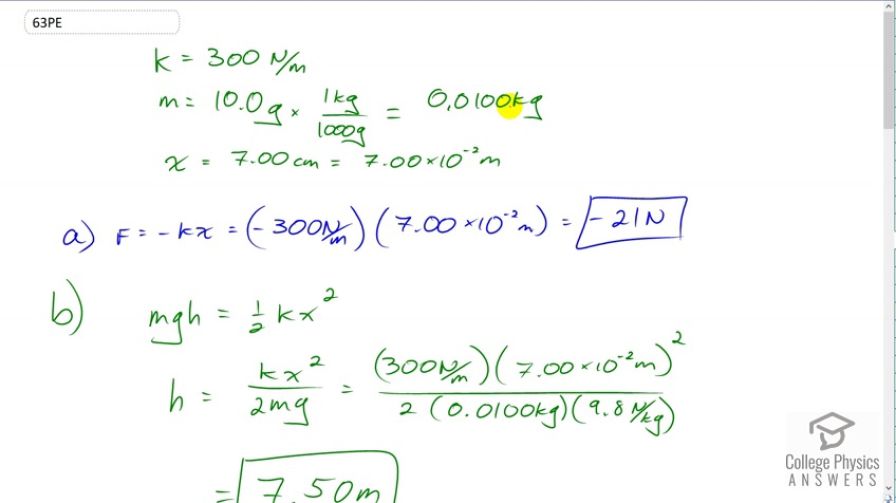 63PE
k = 300 N/m
m = 10.0g × 1kg/1000g = 0.0100kg
x = 7.00 cm = 7.00 × 10⁻² m
a) F = -kx = (-300 N/m)(7.00 × 10⁻² m) = -21N
b) mgh = 1/2 kx²
h = kx²/2mg = (300 N/m)(7.00 × 10⁻² m)²/2(0.0100kg)(9.8 N/kg)
= 7.50m
College Physics
ANSWERS